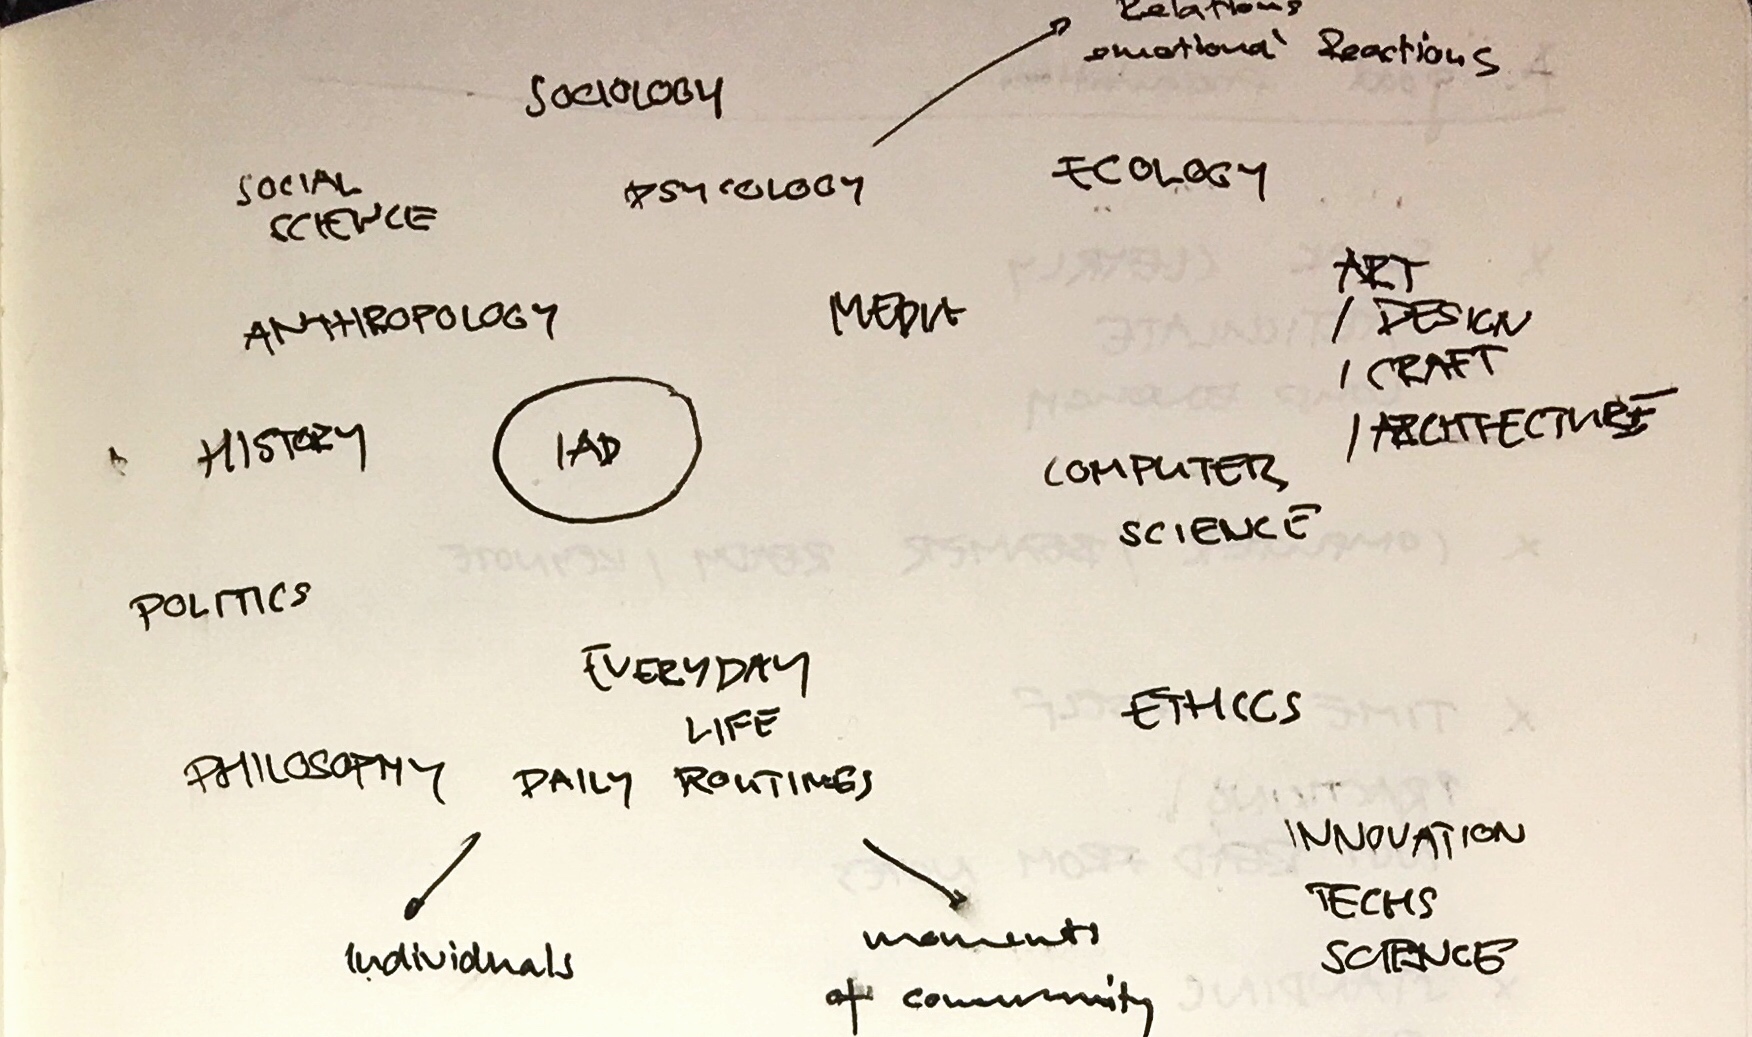 Relations
emotional Reactions
SOCIOLOGY
SOCIAL
SCIENCE
PSYCOLOGY
ECOLOGY
ANTHROPOLOGY
MEDIA
ART
/ DESIGN
/ CRAFT
/ ARCHITECTURE
HISTORY
IAD
COMPUTER
SCIENCE
POLITICS
EVERYDAY
LIFE
DAILY ROUTINES
PHILOSOPHY
ETHICS
INNOVATION
TECHS
SCIENCE
individuals
moments
of community